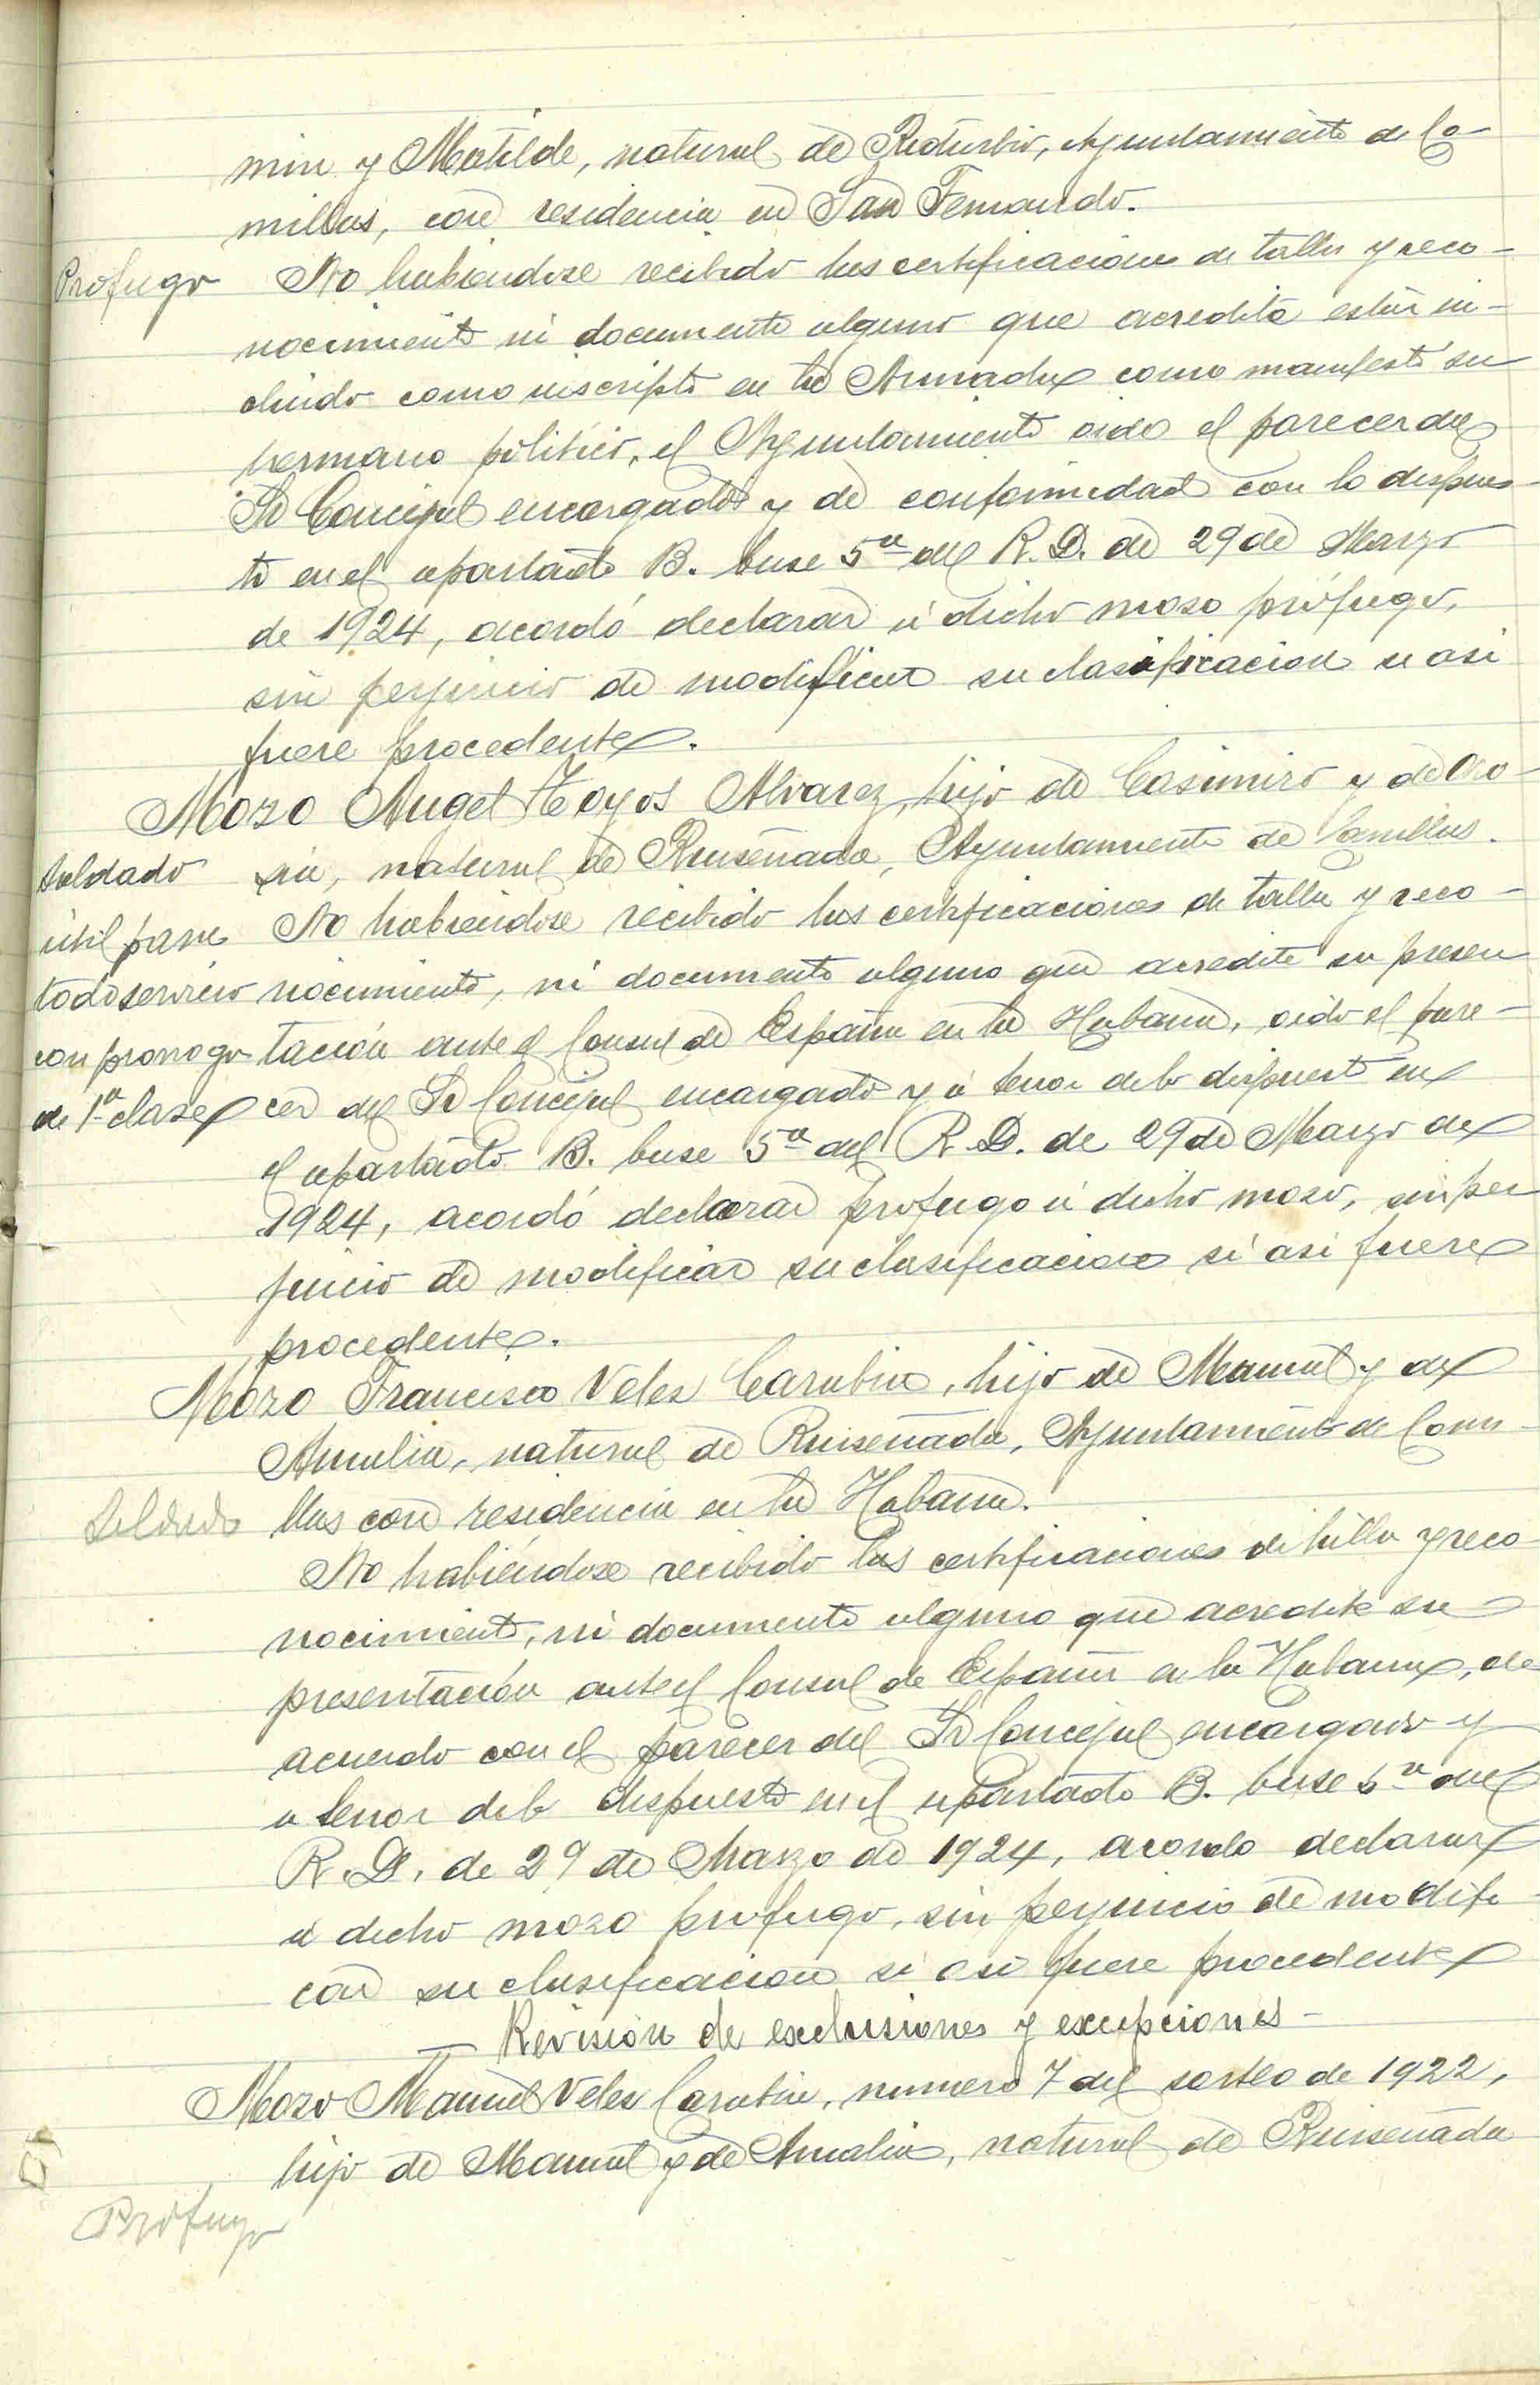 min y Matilde, natural de Rioturbio, Ayuntamiento de Co-
millas, con residencia en San Fernando.
Profugo
No habiendose recibido las certificaciones de talla y reco-
nocimiento ni documento alguno que acredite estar in-
cluido como inscripto en la Armada como manifestó su
hermano politico, el Ayuntamiento oido el parecer del
Sr Concejal encargado y de conformidad con lo dispues-
to en el apartado B. base 5ª del R. D. de 29 de Marzo
de 1924, acordó declarar á dicho moso prófugo,
sin perjuicio de modificar su clasificacion si asi
fuere procedente.
Mozo Angel Hoyos Alvarez, hijo de Casimiro y de
natural de Ruiseñada, Ayuntamiento de Comillas.
Soldado
util para
todo servicio
con prorroga
de 1ª clase
No habiendose recibido las certificaciones de talla y reco-
nocimiento, ni documento alguno que acredite su presen
tación ante el Consul de España en la Habana, oido el pare-
cer del Sr Concejal encargado y á tenor de lo dispuesto en
el apartado B. base 5ª del R. D. de 29 de Marzo de
1924, acordó declarar profugo á dicho moso, sin per
juicio de modificar su clasificacion si asi fuere
procedente.
Mozo Francisco Veles Carabia, hijo de Manuel y de
Amalia, natural de Ruiseñada, Ayuntamiento de Comi-
llas con residencia en la Habana.
Soldado
No habiéndose recibido las certificaciones de talla y reco-
nocimiento, ni documento alguno que acredite su
presentación ante el Consul de España en la Habana, de
acuerdo con el parecer del Sr Concejal encargado y
a tenor de lo dispuesto en el apartado B. base 5ª del
R. D. de 29 de Marzo de 1924, acordo declarar
á dicho mozo profugo, sin perjuicio de modifi
car su clasificacion si asi fuere procedente
— Revisión de exclusiones y excepciones —
Mozo Manuel Veles Carabia, numero 7 del sorteo de 1922,
hijo de Manuel y de Amalia, natural de Ruiseñada
Prófugo